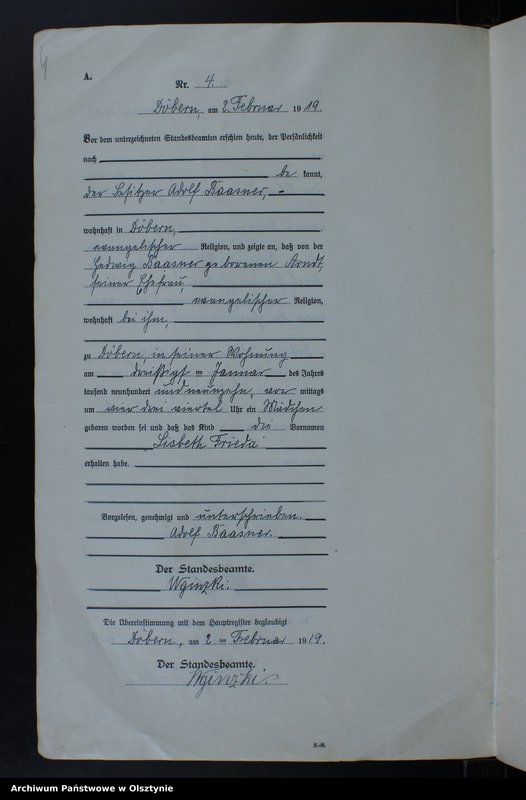 4
A.
Nr. 4.
Döbern, am 2. Februar 1919.
Vor dem unterzeichneten Standesbeamten erschien heute, der Persönlichkeit
nach
be kannt,
der Besitzer Adolf Baasner,
wohnhaft in Döbern,
evangelischer Religion, und zeigte an, daß von der
Hedwig Baasner geborenen Arndt,
seiner Ehefrau,
evangelischer Religion,
wohnhaft bei ihm,
zu Döbern, in seiner Wohnung
am dreißigsten Januar des Jahres
tausend neunhundert und neunzehn, vor mittags
um drei viertel Uhr ein Mädchen
geboren worden sei und daß das Kind die Vornamen
Lisbeth Frieda
erhalten habe.
Vorgelesen, genehmigt und unterschrieben.
Adolf Baasner.
Der Standesbeamte.
Die Übereinstimmung mit dem Hauptregister beglaubigt
Döbern, am 2 ten Februar 1919.
Der Standesbeamte.
Archiwum Państwowe w Olsztynie